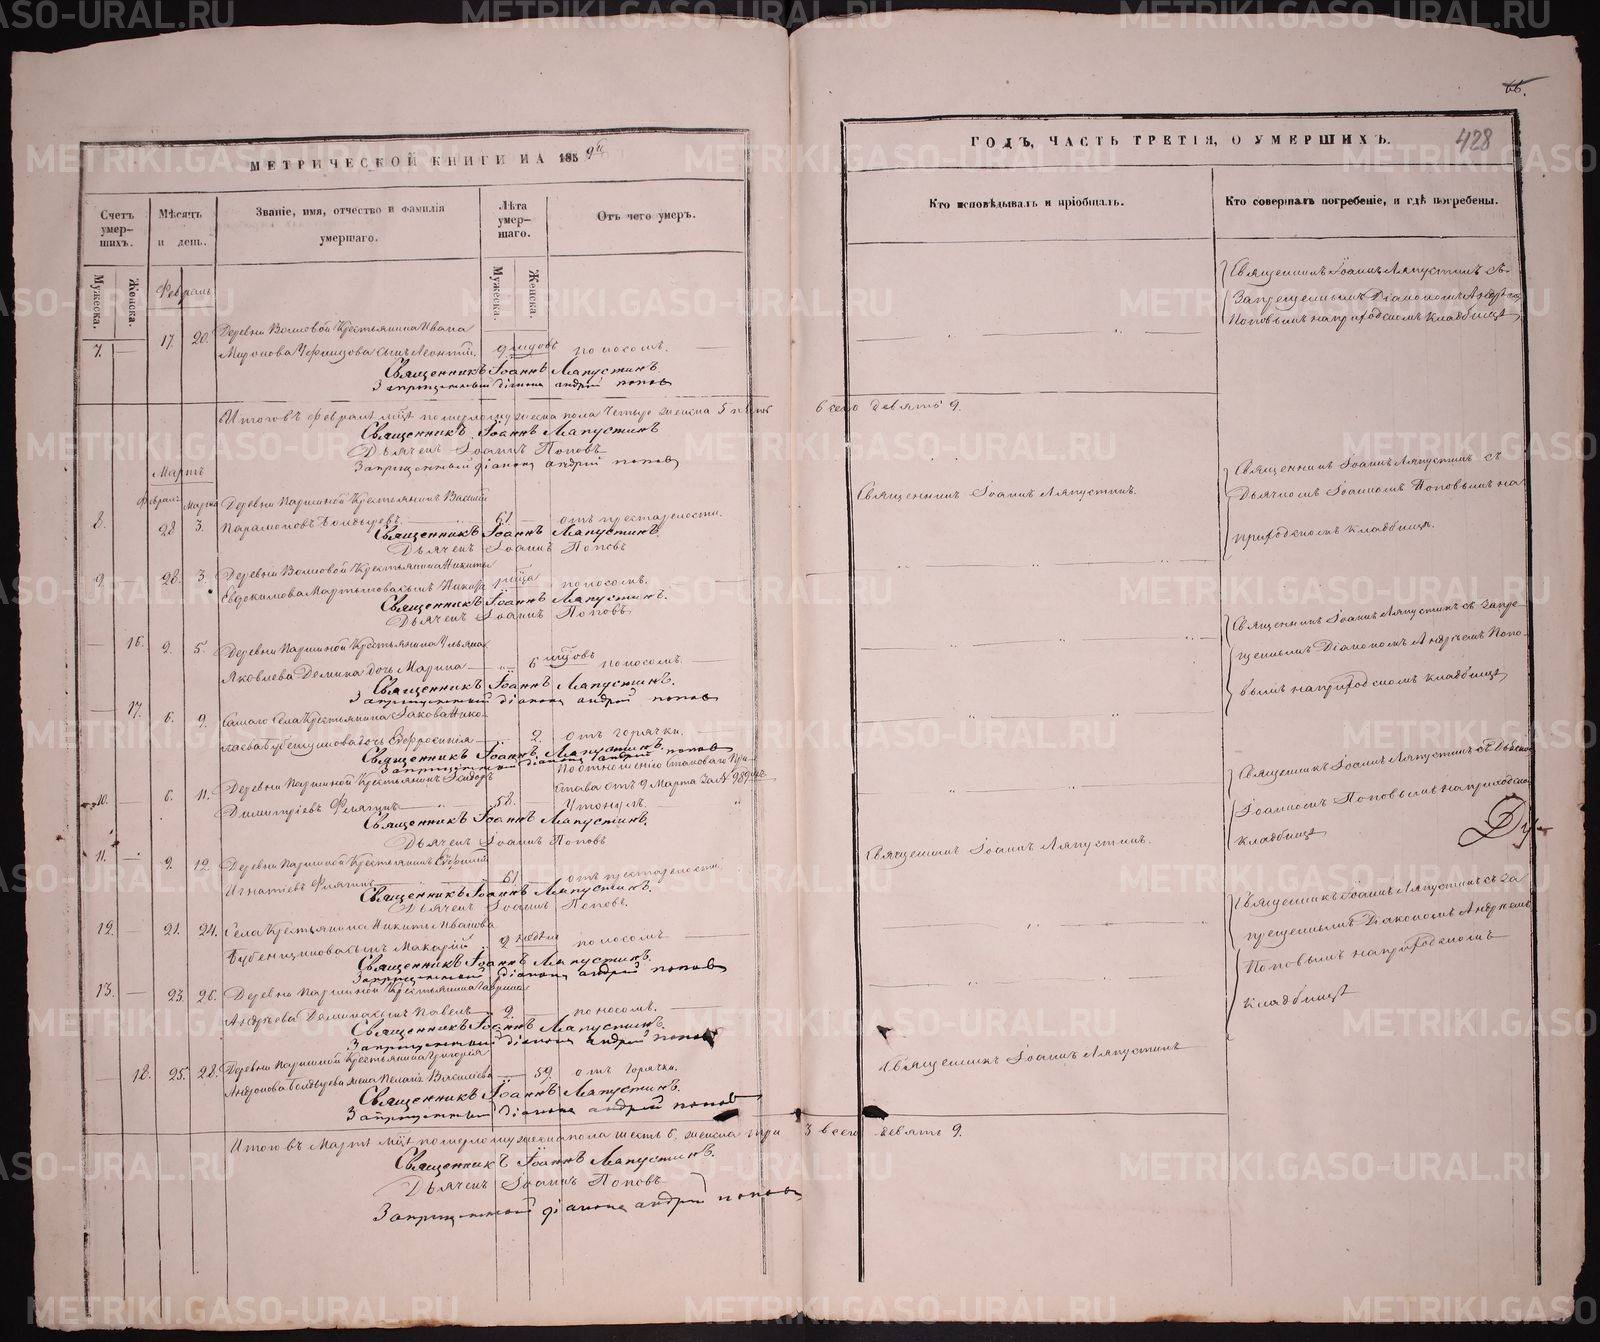 66.
428
МЕТРИЧЕСКОЙ КНИГИ НА 1859й
ГОДЪ, ЧАСТЬ ТРЕТІЯ, О УМЕРШИХЪ.
Счетъ умер-шихъ.
Мѣсяцъ и день.
Званіе, имя, отчество и фамилія умершаго.
Лѣта умер-шаго.
Отъ чего умеръ.
Кто исповѣдывалъ и пріобщалъ.
Кто совершалъ погребеніе, и гдѣ погребены.
Мужеска.
Женска.
Мужеска.
Женска.
Февраль
7. — 17. 20. Деревни Волковой Крестьянина Ивана
Миронова сынъ Леонтій. поносомъ.
Священникъ Іоаннъ Ляпустинъ.
Запрещенный діаконъ андрей попов
Священникъ Іоаннъ Ляпустинъ съ
Запрещеннымъ Діакономъ Андр
Поповымъ на приходскомъ кладбищѣ
Итого въ Февралѣ мцѣ померло мужеска пола четыре женска 5 пять
всего девять 9.
Священникъ Іоаннъ Ляпустинъ
Дьячекъ Іоаннъ Поповъ
Запрещенный діаконъ андрей попов
Мартъ
Февраль Марта
8. 28 3. Деревни Паршиной Крестьянинъ Василій
Парамоновъ Болдыревъ. 61 отъ престарелости.
Священникъ Іоаннъ Ляпустинъ.
Дьячекъ Іоаннъ Поповъ
Священникъ Іоаннъ Ляпустинъ.
Священникъ Іоаннъ Ляпустинъ съ
Дьячкомъ Іоанномъ Поповымъ на
приходскомъ кладбищѣ.
9. 28. 3. Деревни Волковой Крестьянина Никиты
Евдокимова сынъ поносомъ.
Священникъ Іоаннъ Ляпустинъ.
Дьячекъ Іоаннъ Поповъ
— 16. 2. 5. Деревни Паршиной Крестьянина Ульяна
Яковлева Демина дочь Марина 6 поносомъ.
Священникъ Іоаннъ Ляпустинъ.
Запрещенный діаконъ андрей попов
Священникъ Іоаннъ Ляпустинъ съ запре-
щеннымъ Діакономъ Андреемъ Попо-
вымъ на приходскомъ кладбищѣ
— 17. 6. 9. Самаго Села Крестьянина Іакова Нико-
лаева Бубенщикова дочь Евфросинія 2. отъ горячки.
Священникъ Іоаннъ Ляпустинъ.
Запрещенный діаконъ андрей попов
10. — 6. 11. Деревни Паршиной Крестьянинъ
Димитріевъ 58. По отношенію Становаго При-
става отъ 9 Марта за №
Утонулъ.
Священникъ Іоаннъ Ляпустинъ.
Дьячекъ Іоаннъ Поповъ
Священникъ Іоаннъ Ляпустинъ съ Дьячко
Іоанномъ Поповымъ на приходско
кладбищѣ
11. — 9. 12. Деревни Паршиной Крестьянинъ
Игнатіевъ 61 отъ престарелости.
Священникъ Іоаннъ Ляпустинъ.
Дьячекъ Іоаннъ Поповъ.
Священникъ Іоаннъ Ляпустинъ.
12. — 21. 24. Села Крестьянина Никиты Иванова
Бубенщикова сынъ Макарій 2 недѣли поносомъ
Священникъ Іоаннъ Ляпустинъ.
Запрещенный діаконъ андрей попов
Священникъ Іоаннъ Ляпустинъ съ за
прещеннымъ Діакономъ Андреемъ
Поповымъ на приходскомъ
кладбищѣ
13. — 23. 26. Деревни Паршиной Крестьянина Гаврила
Андреева Демина сынъ Павелъ 2. поносомъ.
Священникъ Іоаннъ Ляпустинъ.
Запрещенный діаконъ андрей попов
— 18. 25. 28. Деревни Паршиной Крестьянина Григорія
Болдырева жена Васильева 59. отъ горячки.
Священникъ Іоаннъ Ляпустинъ.
Запрещенный діаконъ андрей попов
Священникъ Іоаннъ Ляпустинъ
Итого въ Мартѣ мцѣ померло мужеска пола шесть 6. женска три 3 всего девять 9.
Священникъ Іоаннъ Ляпустинъ.
Дьячекъ Іоаннъ Поповъ
Запрещенный діаконъ андрей попов
METRIKI.GASO-URAL.RU